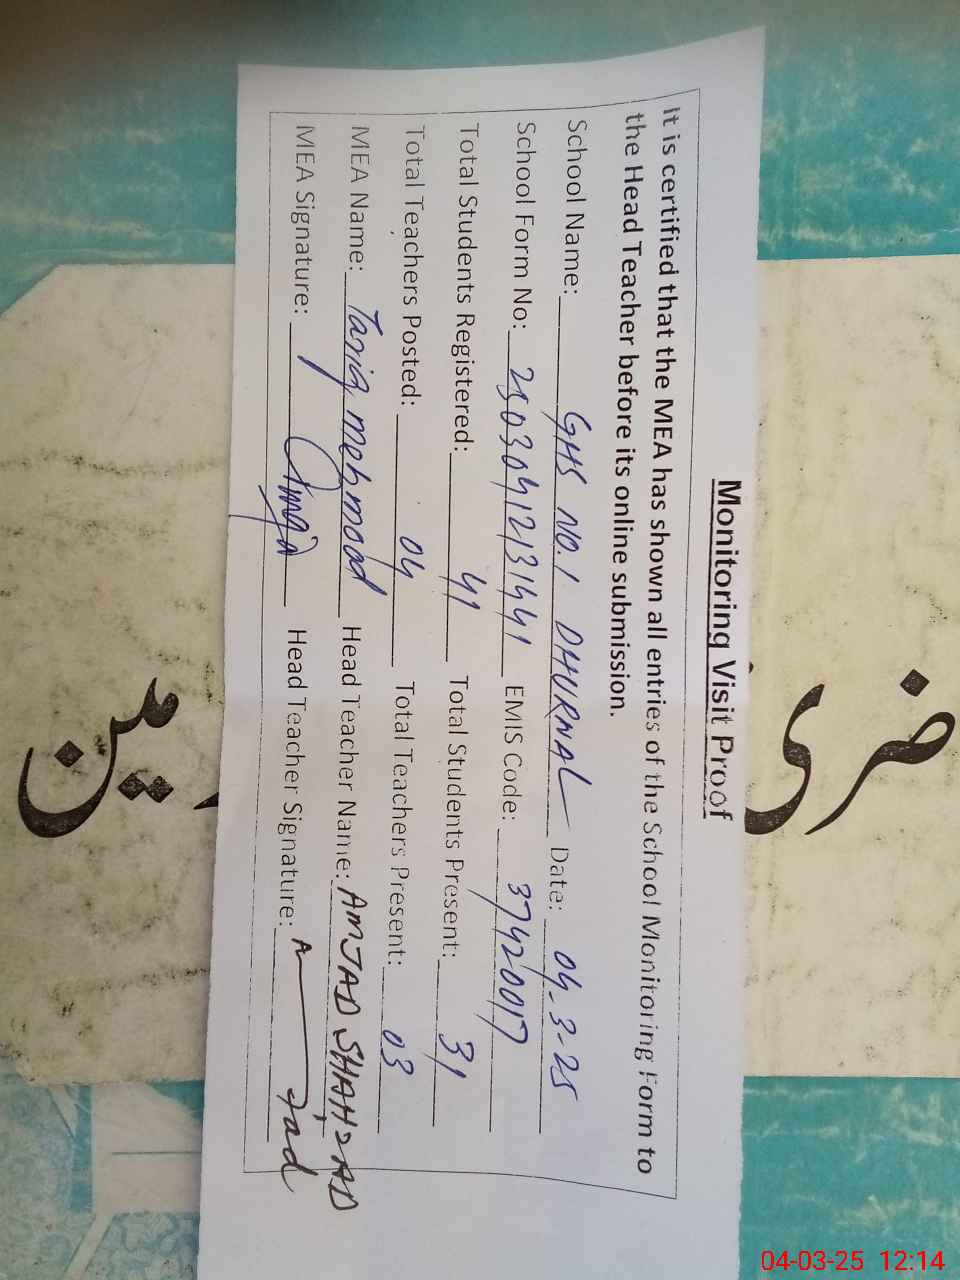 Monitoring Visit Proof
It is certified that the MEA has shown all entries of the School Monitoring Form to
the Head Teacher before its online submission.
School Name: GHS NO.1 DHURNAL Date: 04-3-25
School Form No: EMIS Code: 37420017
Total Students Registered: 41 Total Students Present: 31
Total Teachers Posted: 04 Total Teachers Present: 03
MEA Name: Tariq mehmood Head Teacher Name: AMJAD SHAHZAD
MEA Signature: Head Teacher Signature:
04-03-25 12:14